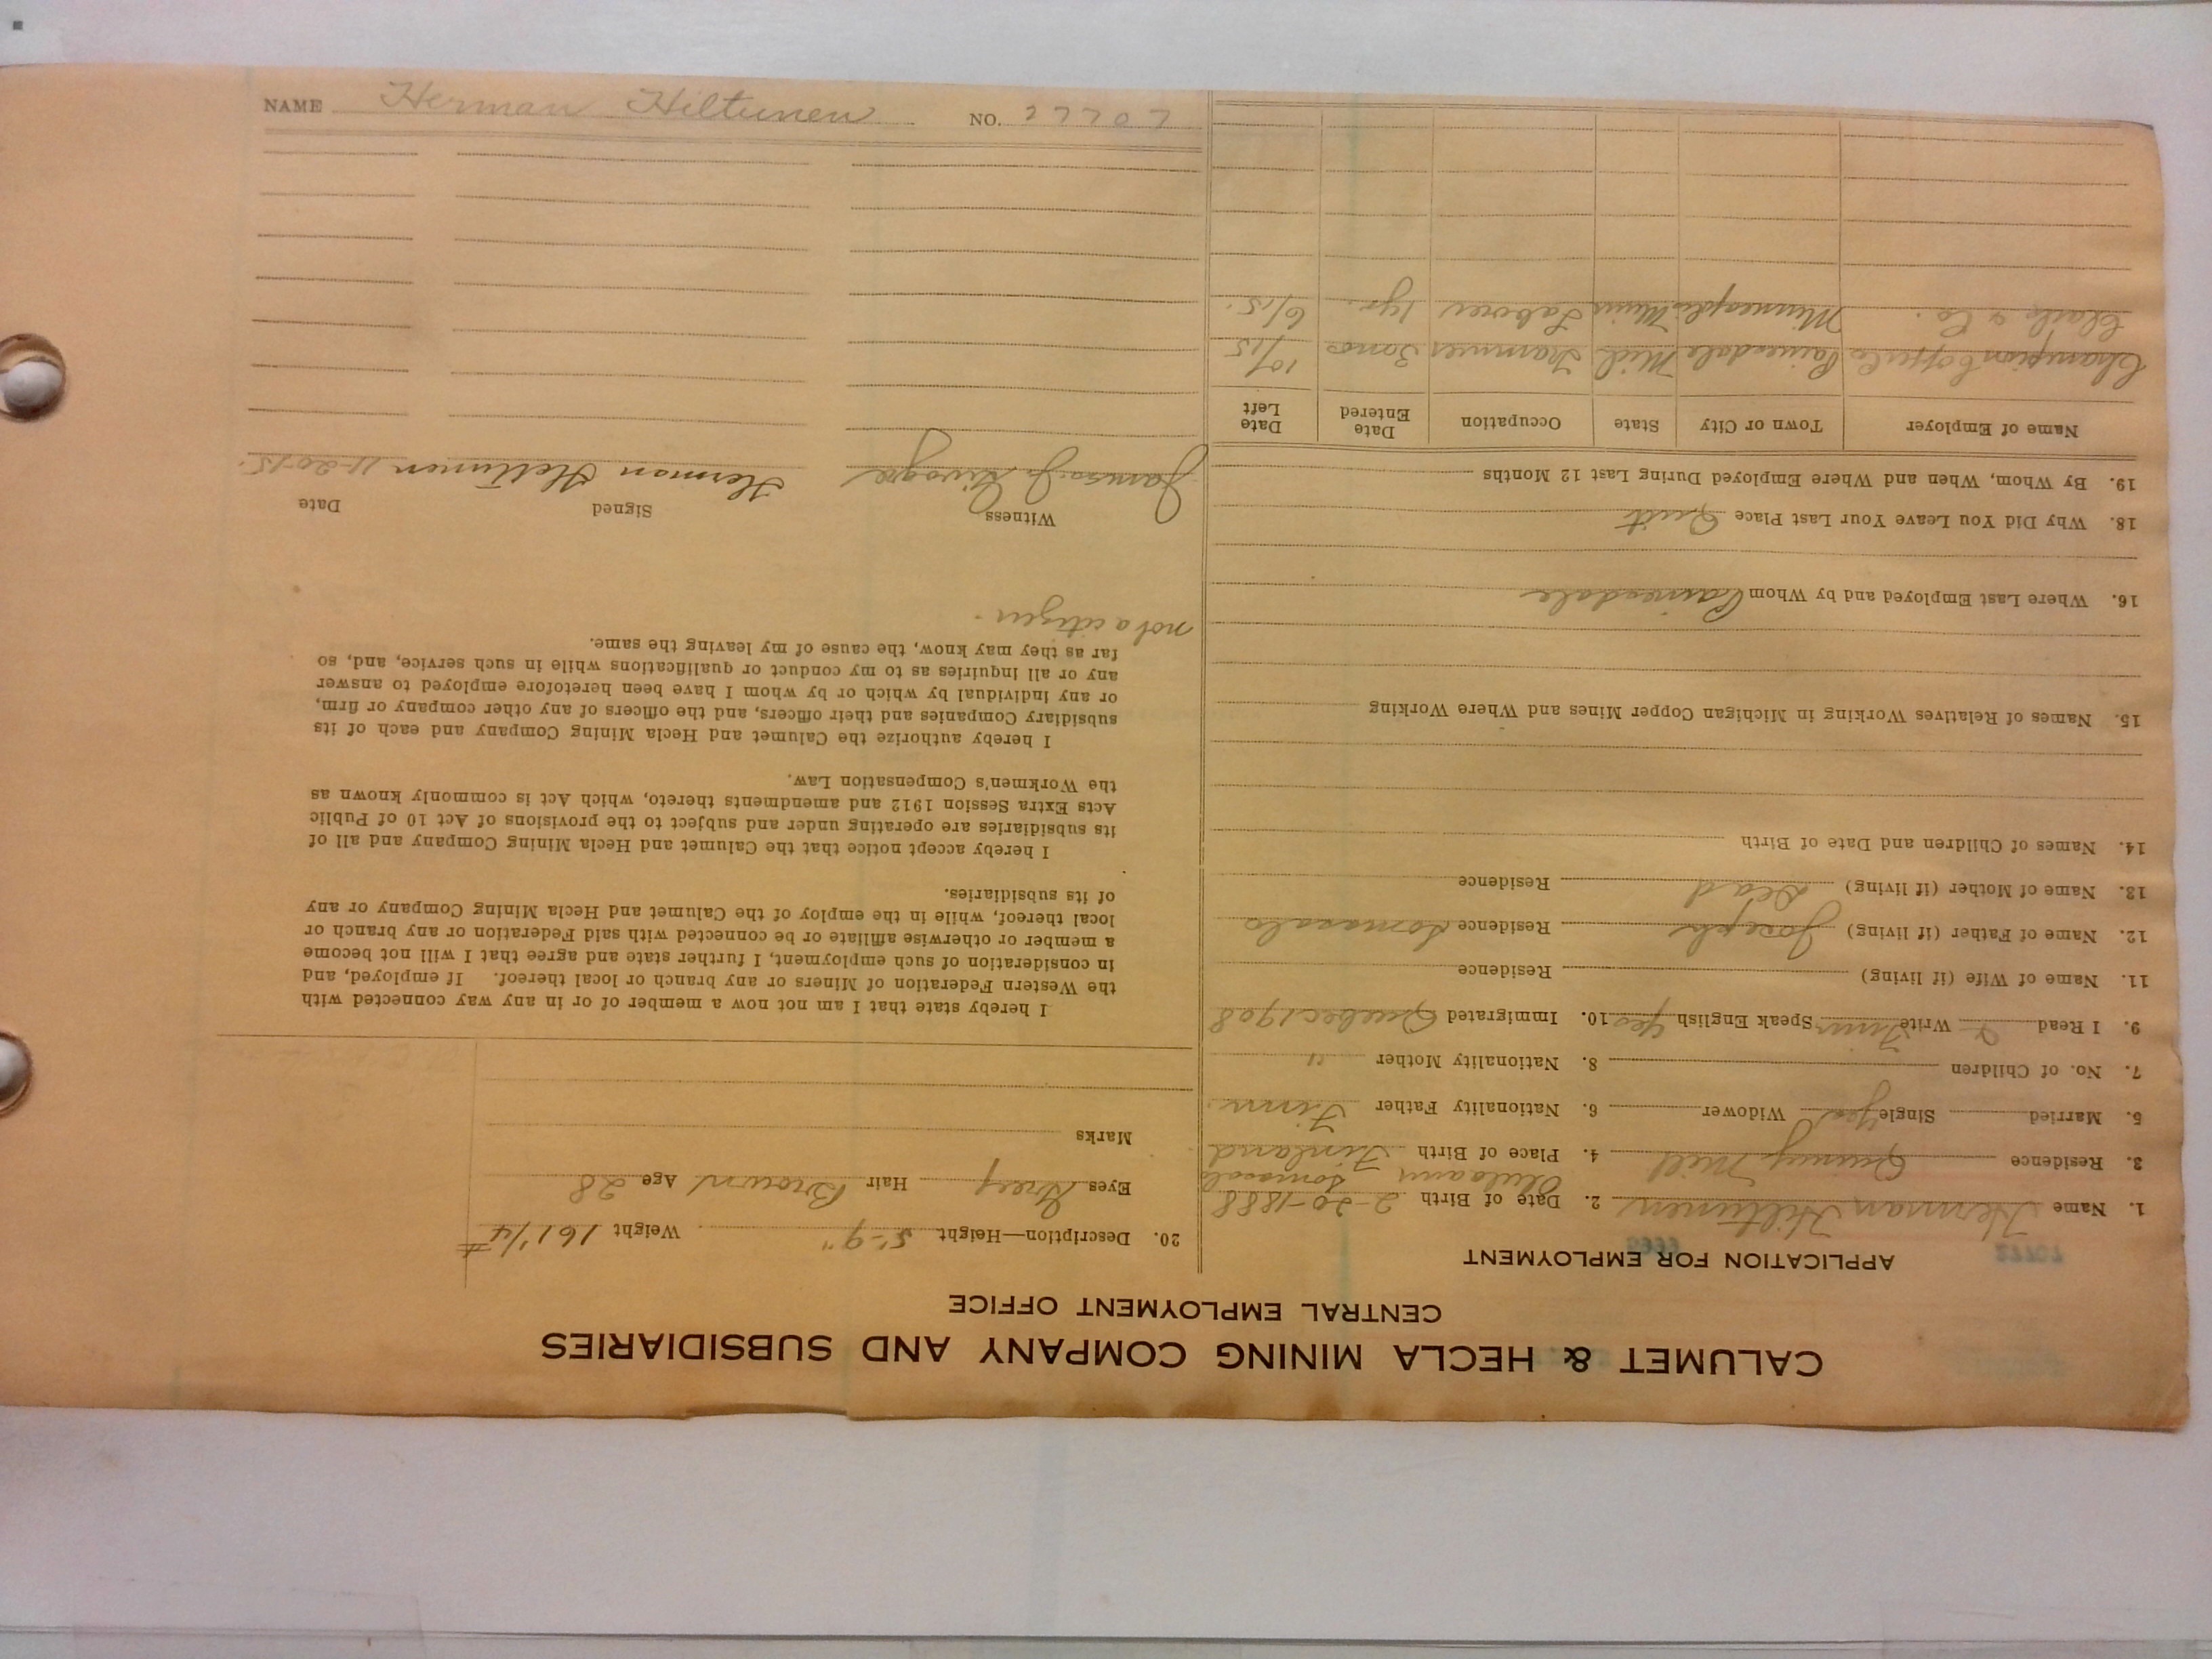 CALUMET & HECLA MINING COMPANY AND SUBSIDIARIES
CENTRAL EMPLOYMENT OFFICE
APPLICATION FOR EMPLOYMENT
1. Name Herman Hiltunen 2. Date of Birth 2-20-1888
3. Residence Quincy Mill 4. Place of Birth Finland
5. Married Single Yes Widower 6. Nationality Father Finn.
7. No. of Children 8. Nationality Mother "
9. I Read & Write Finn Speak English Yes 10. Immigrated Quebec 1908
11. Name of Wife (if living) Residence
12. Name of Father (if living) Joseph Residence
13. Name of Mother (if living) Dead Residence
14. Names of Children and Date of Birth
15. Names of Relatives Working in Michigan Copper Mines and Where Working
16. Where Last Employed and by Whom Painesdale
18. Why Did You Leave Your Last Place Quit
19. By Whom, When and Where Employed During Last 12 Months
Name of Employer Town or City State Occupation Date Entered Date Left
Champion Copper Co Painesdale Mich Trammer 3 mos 10/15
& Co. Minneapolis Minn Laborer 1 yr. 6/15.
20. Description—Height 5'-9" Weight 161 1/4 #
Eyes Grey Hair Brown Age 28
Marks
I hereby state that I am not now a member of or in any way connected with
the Western Federation of Miners or any branch or local thereof. If employed, and
in consideration of such employment, I further state and agree that I will not become
a member or otherwise affiliate or be connected with said Federation or any branch or
local thereof, while in the employ of the Calumet and Hecla Mining Company or any
of its subsidiaries.
I hereby accept notice that the Calumet and Hecla Mining Company and all of
its subsidiaries are operating under and subject to the provisions of Act 10 of Public
Acts Extra Session 1912 and amendments thereto, which Act is commonly known as
the Workmen's Compensation Law.
I hereby authorize the Calumet and Hecla Mining Company and each of its
subsidiary Companies and their officers, and the officers of any other company or firm,
or any individual by which or by whom I have been heretofore employed to answer
any or all inquiries as to my conduct or qualifications while in such service, and, so
far as they may know, the cause of my leaving the same.
not a citizen.
Witness Signed Date
James J. Herman Hiltunen 11-20-15.
NAME Herman Hiltunen NO. 27707